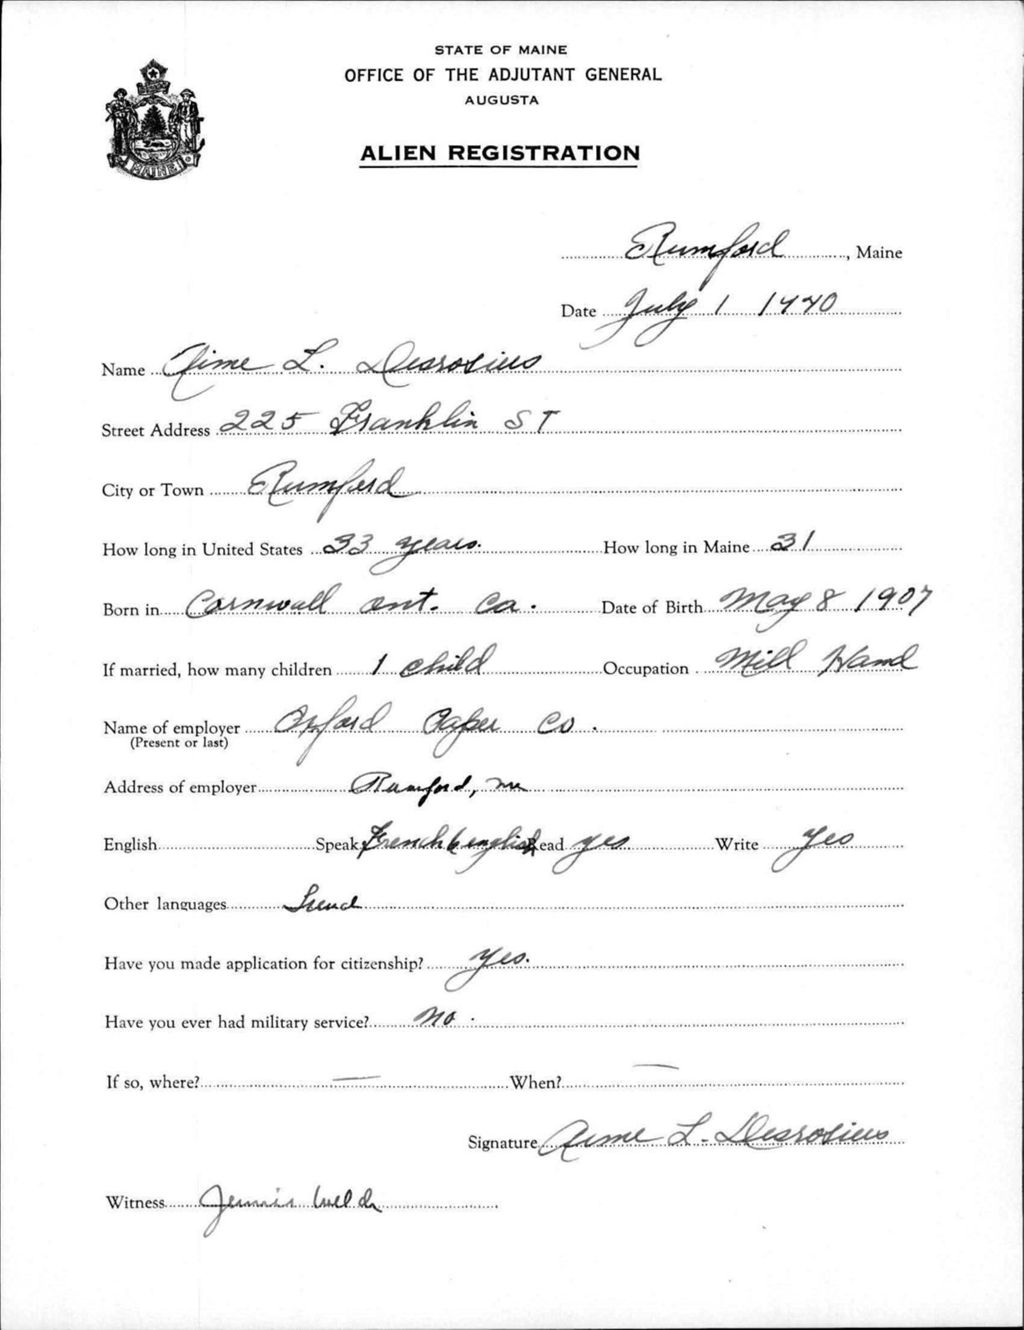 STATE OF MAINE
OFFICE OF THE ADJUTANT GENERAL
AUGUSTA
ALIEN REGISTRATION
MAINE
Rumford, Maine
Date July 1 1940
Name Aime L. Desrosiers
Street Address 225 Franklin ST
City or Town Rumford
How long in United States 33 years. How long in Maine 31
Born in Cornwall Ont. Ca. Date of Birth May 8 1907
If married, how many children 1 child Occupation Mill Hand
Name of employer Oxford Paper Co.
(Present or last)
Address of employer Rumford, Me
English Speak French & english Read yes Write Yes
Other languages French
Have you made application for citizenship? Yes.
Have you ever had military service? No.
If so, where? — When? —
Signature Aime L. Desrosiers
Witness Welch